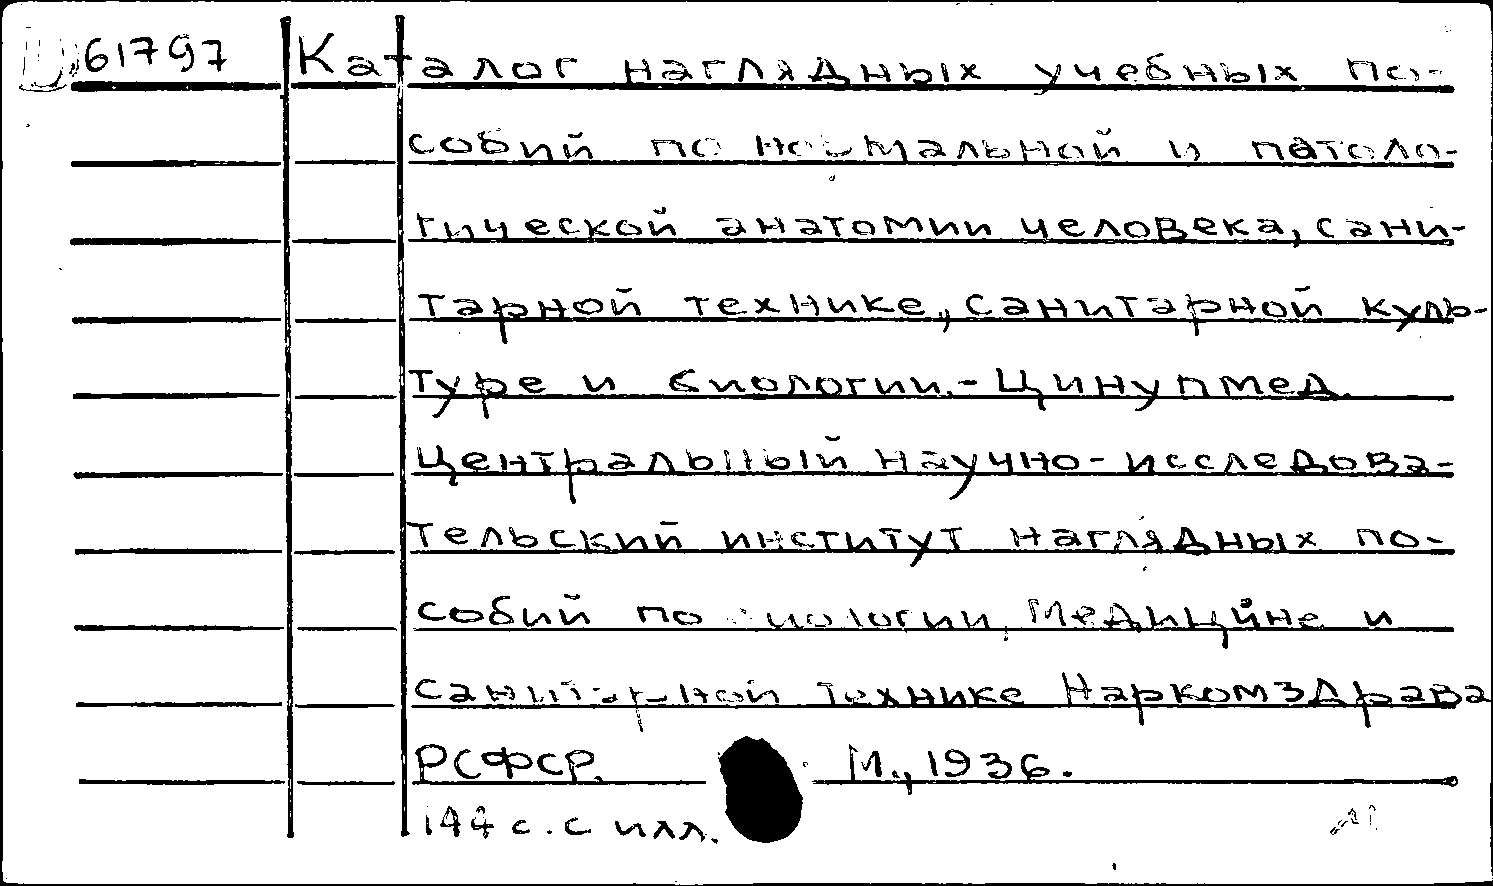 61797 Каталог наглядных учебных по-
собий по нормальной и патоло-
гической анатомии человека, сани-
тарной технике, санитарной куль-
туре и биологии.-Цинупмед.
Центральный научно-исследова-
тельский институт наглядных по-
собий по биологии, медицине и
санитарной технике Наркомздрава
РСФСР. М., 1936.
144 с. с илл.